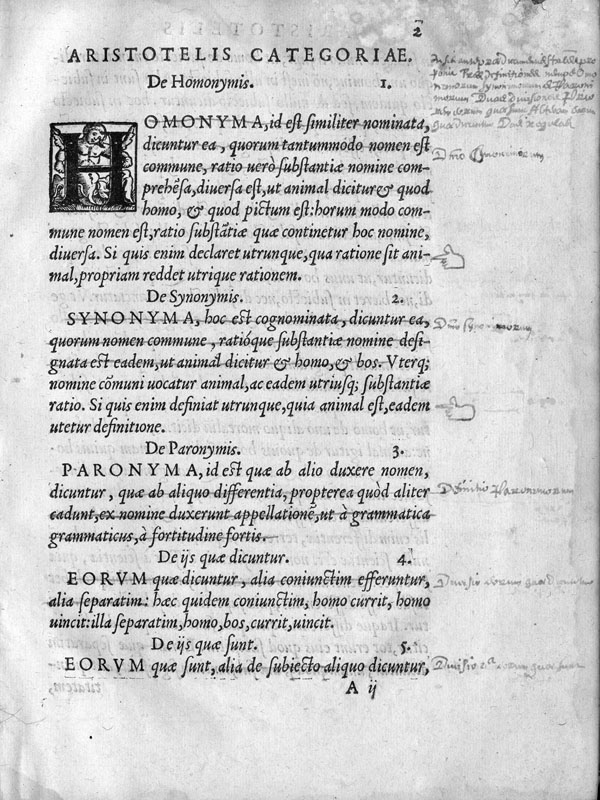 2
ARISTOTELIS CATEGORIAE.
De Homonymis. 1.
HOMONYMA, id est similiter nominata,
dicuntur ea, quorum tantummodo nomen est
commune, ratio uerò substantiæ nomine com-
prehẽsa, diuersa est, ut animal dicitur & quod
homo, & quod pictum est: horum modo com-
mune nomen est, ratio substãtiæ quæ continetur hoc nomine,
diuersa. Si quis enim declaret utrunque, qua ratione sit ani-
mal, propriam reddet utrique rationem.
De Synonymis. 2.
SYNONYMA, hoc est cognominata, dicuntur ea,
quorum nomen commune, ratióque substantiæ nomine desi-
gnata est eadem, ut animal dicitur & homo, & bos. Vterq;
nomine cõmuni uocatur animal, ac eadem utriusq; substantiæ
ratio. Si quis enim definiat utrunque, quia animal est, eadem
utetur definitione.
De Paronymis. 3.
PARONYMA, id est quæ ab alio duxere nomen,
dicuntur, quæ ab aliquo differentia, propterea quòd aliter
cadunt, ex nomine duxerunt appellationẽ, ut à grammatica
grammaticus, à fortitudine fortis.
De ijs quæ dicuntur. 4.
EORVM quæ dicuntur, alia coniunctim efferuntur,
alia separatim: hæc quidem coniunctim, homo currit, homo
uincit: illa separatim, homo, bos, currit, uincit.
De ijs quæ sunt. 5.
EORVM quæ sunt, alia de subiecto aliquo dicuntur,
A ij